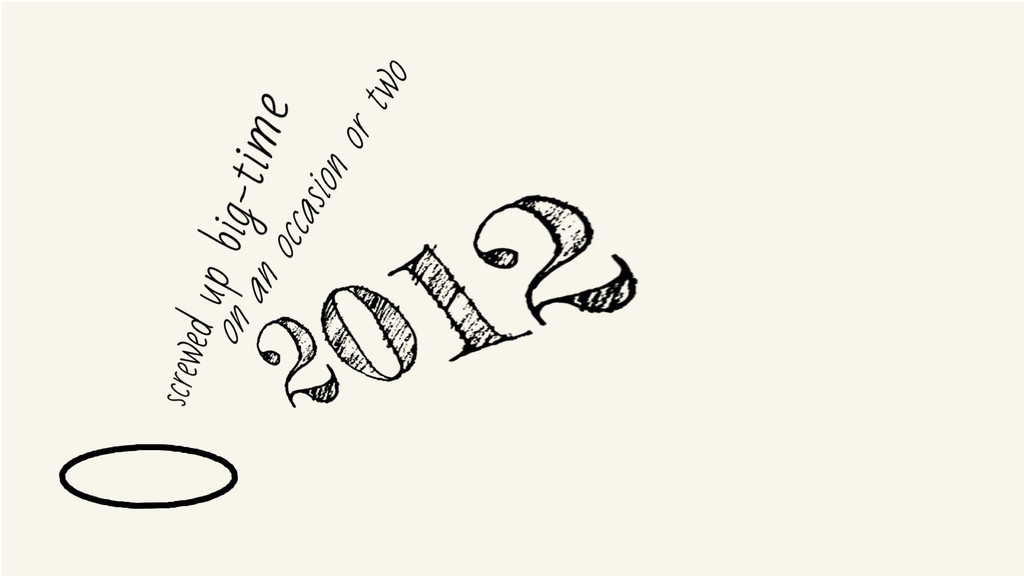 screwed up big-time
on an occasion or two
2012